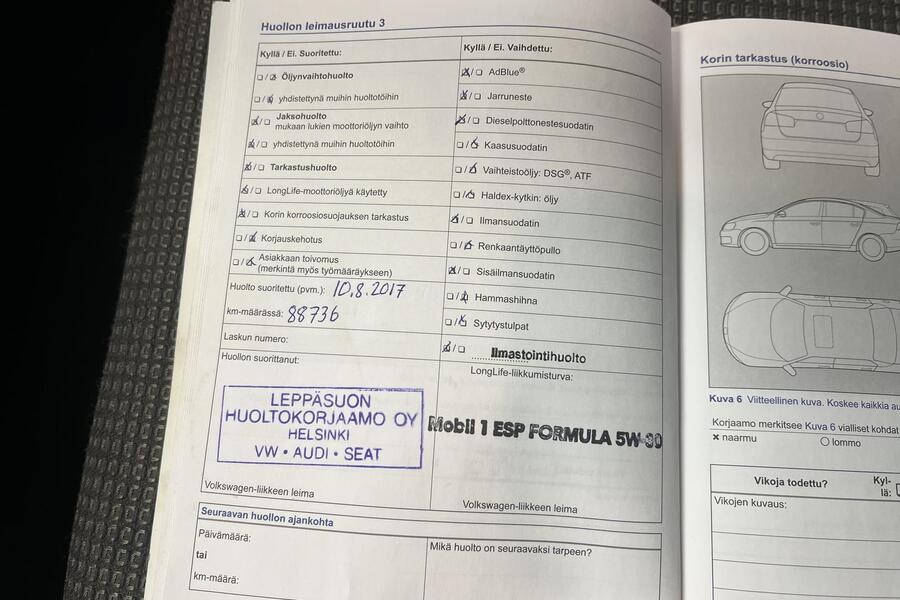 Huollon leimausruutu 3
Kyllä / Ei. Suoritettu:
Öljynvaihtohuolto
yhdistettynä muihin huoltotöihin
Jaksohuolto
mukaan lukien moottoriöljyn vaihto
yhdistettynä muihin huoltotöihin
Tarkastushuolto
LongLife-moottoriöljyä käytetty
Korin korroosiosuojauksen tarkastus
Korjauskehotus
Asiakkaan toivomus
(merkintä myös työmääräykseen)
Huolto suoritettu (pvm.): 10.8.2017
km-määrässä: 88736
Laskun numero:
Huollon suorittanut:
LEPPÄSUON
HUOLTOKORJAAMO OY
HELSINKI
VW • AUDI • SEAT
Volkswagen-liikkeen leima
Kyllä / Ei. Vaihdettu:
AdBlue®
Jarruneste
Dieselpolttonestesuodatin
Kaasusuodatin
Vaihteistoöljy: DSG®, ATF
Haldex-kytkin: öljy
Ilmansuodatin
Renkaantäyttöpullo
Sisäilmansuodatin
Hammashihna
Sytytystulpat
Ilmastointihuolto
LongLife-liikkumisturva:
Mobil 1 ESP FORMULA 5W-30
Volkswagen-liikkeen leima
Seuraavan huollon ajankohta
Päivämäärä:
tai
km-määrä:
Mikä huolto on seuraavaksi tarpeen?
Korin tarkastus (korroosio)
Kuva 6 Viitteellinen kuva. Koskee kaikkia
Korjaamo merkitsee Kuva 6 vialliset kohdat
× naarmu
○ lommo
Vikoja todettu?
Kyl-
lä:
Vikojen kuvaus: